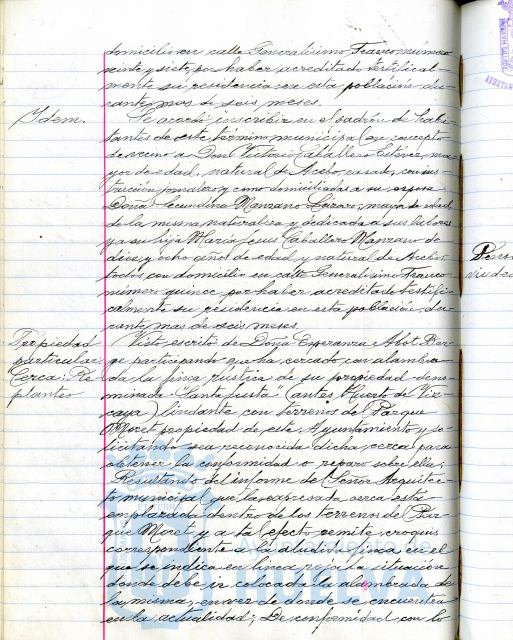 domicilio en calle Generalísimo Franco número
veinte y siete, por haber acreditado testifical-
mente su residencia en esta población du-
rante mas de seis meses.
Idem.
Se acordó inscribir en el padrón de habi-
tantes de este término municipal en concepto
de vecino a Don Victorio Caballero Estévez, ma-
yor de edad, natural de Acebo, casado, con ins-
trucción, jornalero y como domiciliadas a su esposa
Doña Secundina Manzano Lázaro, mayor de edad
de la misma naturaleza y dedicada a sus labores
y a su hija María Jesús Caballero Manzano de
diez y ocho años de edad y natural de Acebo,
todos con domicilio en calle Generalísimo Franco
número quince por haber acreditado testifi-
calmente su residencia en esta población du-
rante mas de seis meses.
Propiedad
particular:
Cerca: Re
planteo
Visto escrito de Doña Esperanza Abot Bor-
ge participando que ha cercado con alambra-
da la finca rústica de su propiedad deno-
minada Santa Justa (antes Huerto de Viz-
caya) lindante con terrenos del Parque
Moret propiedad de este Ayuntamiento y so-
licitando sea reconocida dicha cerca para
obtener la conformidad o reparo sobre ella;
Resultando del informe del Señor Arquitec-
to municipal que la expresada cerca está
emplazada dentro de los terrenos del Par-
que Moret y a tal efecto remite croquis
correspondiente a la aludida finca en el
que se indica en línea roja la situación
donde debe ir colocada la alambrada de
la misma, en vez de donde se encuentra
en la actualidad; De conformidad con lo
HUELVA